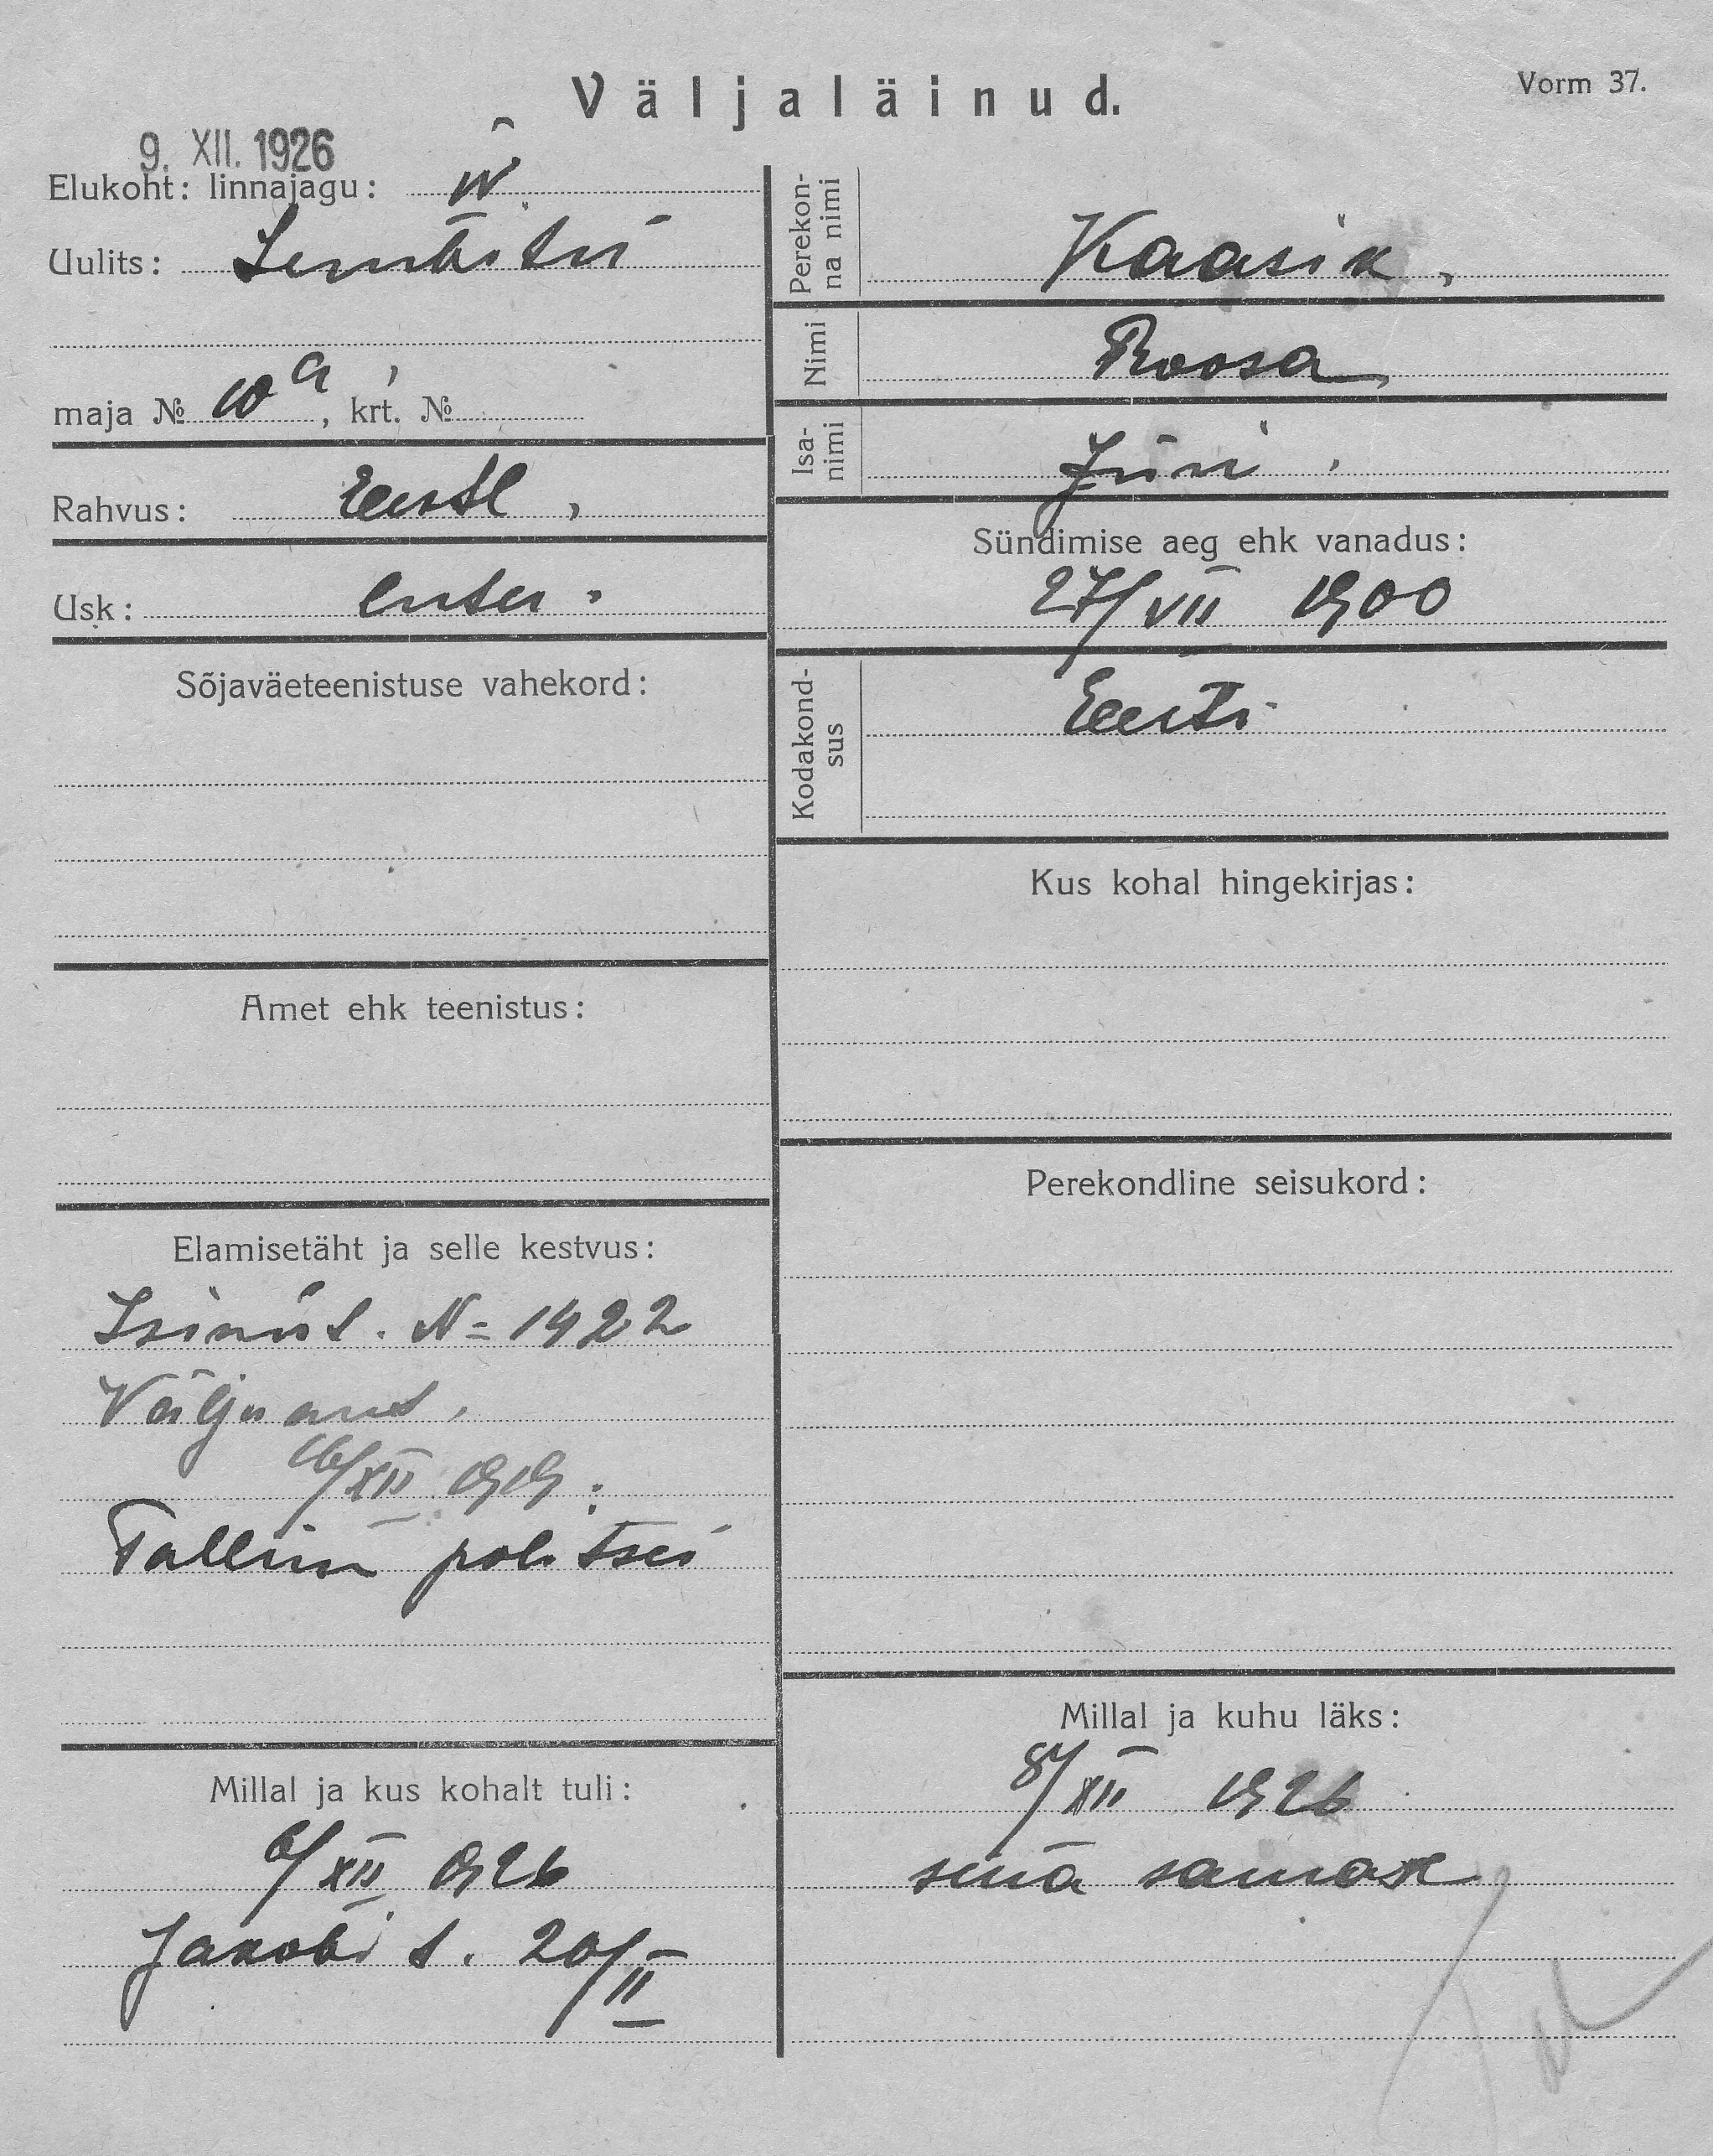 Väljaläinud.
Vorm 37.
9. XII. 1926
Elukoht: linnajagu: IV
Uulits: Lembitu
maja № 10a, krt. №
Rahvus: Eestl.
Usk: luter.
Sõjaväeteenistuse vahekord:
Amet ehk teenistus:
Elamisetäht ja selle kestvus:
Isikut. N= 1922
Välja ant.
16/XII 1919.
Tallinn politsei
Millal ja kus kohalt tuli:
6/XII 1926
Jakobi t. 20/II
Perekonna nimi
Kaasik,
Nimi
Roosa
Isanimi
Jüri.
Sündimise aeg ehk vanadus:
27/VII 1900
Kodakondsus
Eesti
Kus kohal hingekirjas:
Perekondline seisukord:
Millal ja kuhu läks:
8/XII 1926
sinna samasse